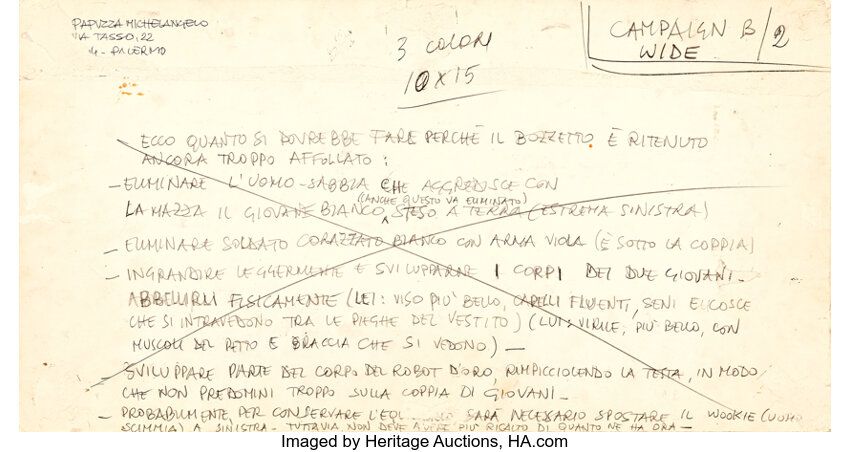 PAPUZZA MICHELANGELO
VIA TASSO, 22
4 - PALERMO
3 COLORI
10 X 15
CAMPAIGN B/2
WIDE
ECCO QUANTO SI DOVREBBE FARE PERCHÈ IL BOZZETTO È RITENUTO
ANCORA TROPPO AFFOLLATO:
- ELIMINARE L'UOMO-SABBIA CHE AGGREDISCE CON
(ANCHE QUESTO VA ELIMINATO)
LA MAZZA IL GIOVANE BIANCO, STESO A TERRA (ESTREMA SINISTRA)
- ELIMINARE SOLDATO CORAZZATO BIANCO CON ARMA VIOLA (È SOTTO LA COPPIA)
- INGRANDIRE LEGGERMENTE E SVILUPPARNE I CORPI DEI DUE GIOVANI -
ABBELLIRLI FISICAMENTE (LEI: VISO PIÙ BELLO, CAPELLI FLUENTI, SENI E COSCE
CHE SI INTRAVEDONO TRA LE PIEGHE DEL VESTITO) (LUI: VIRILE, PIÙ BELLO, CON
MUSCOLI DEL PETTO E BRACCIA CHE SI VEDONO) -
- SVILUPPARE PARTE DEL CORPO DEL ROBOT D'ORO, RIMPICCIOLENDO LA TESTA, IN MODO
CHE NON PREDOMINI TROPPO SULLA COPPIA DI GIOVANI -
- PROBABILMENTE, PER CONSERVARE L'EQUI SARÀ NECESSARIO SPOSTARE IL WOOKIE (UOMO
SCIMMIA) A SINISTRA - TUTTAVIA NON DEVE AVERE PIÙ RISALTO DI QUANTO NE HA ORA -
Imaged by Heritage Auctions, HA.com